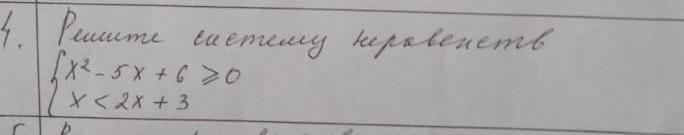 4. Решите систему неравенств
{x² - 5x + 6 ⩾ 0
x < 2x + 3